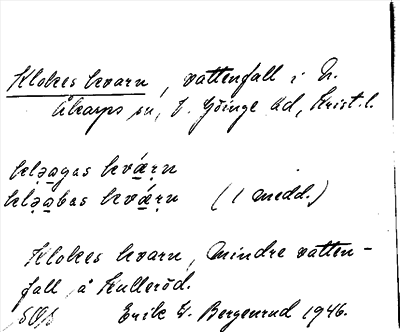 Klokes kvarn, vattenfall i N.
Åkarps sn, V. Göinge hd, Krist. l.
klǝagas kvárn
klǝabas kvárn (1 medd.)
Klokes kvarn, mindre vatten-
fall å Kulleröd.
Erik W. Bergenrud 1946.